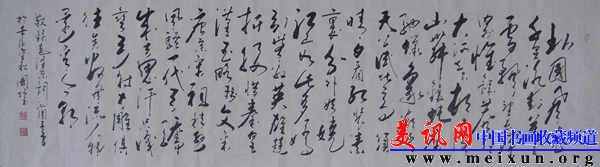 北国风光
千里冰封万里
雪飘望长城内
外惟余莽莽
大河上下顿失滔滔
山舞银蛇原
驰蜡象欲与
天公试比高须
晴日看红装素
裹分外妖娆
江山如此多娇
引无数英雄竞
折腰惜秦皇
汉武略输文采
唐宗宋祖稍逊
风骚一代天骄
成吉思汗只识
弯弓射大雕俱
往矣数风流人物
还看今朝
敬录毛泽东词沁园春雪
美讯网
中国书画收藏频道
www.meixun.org